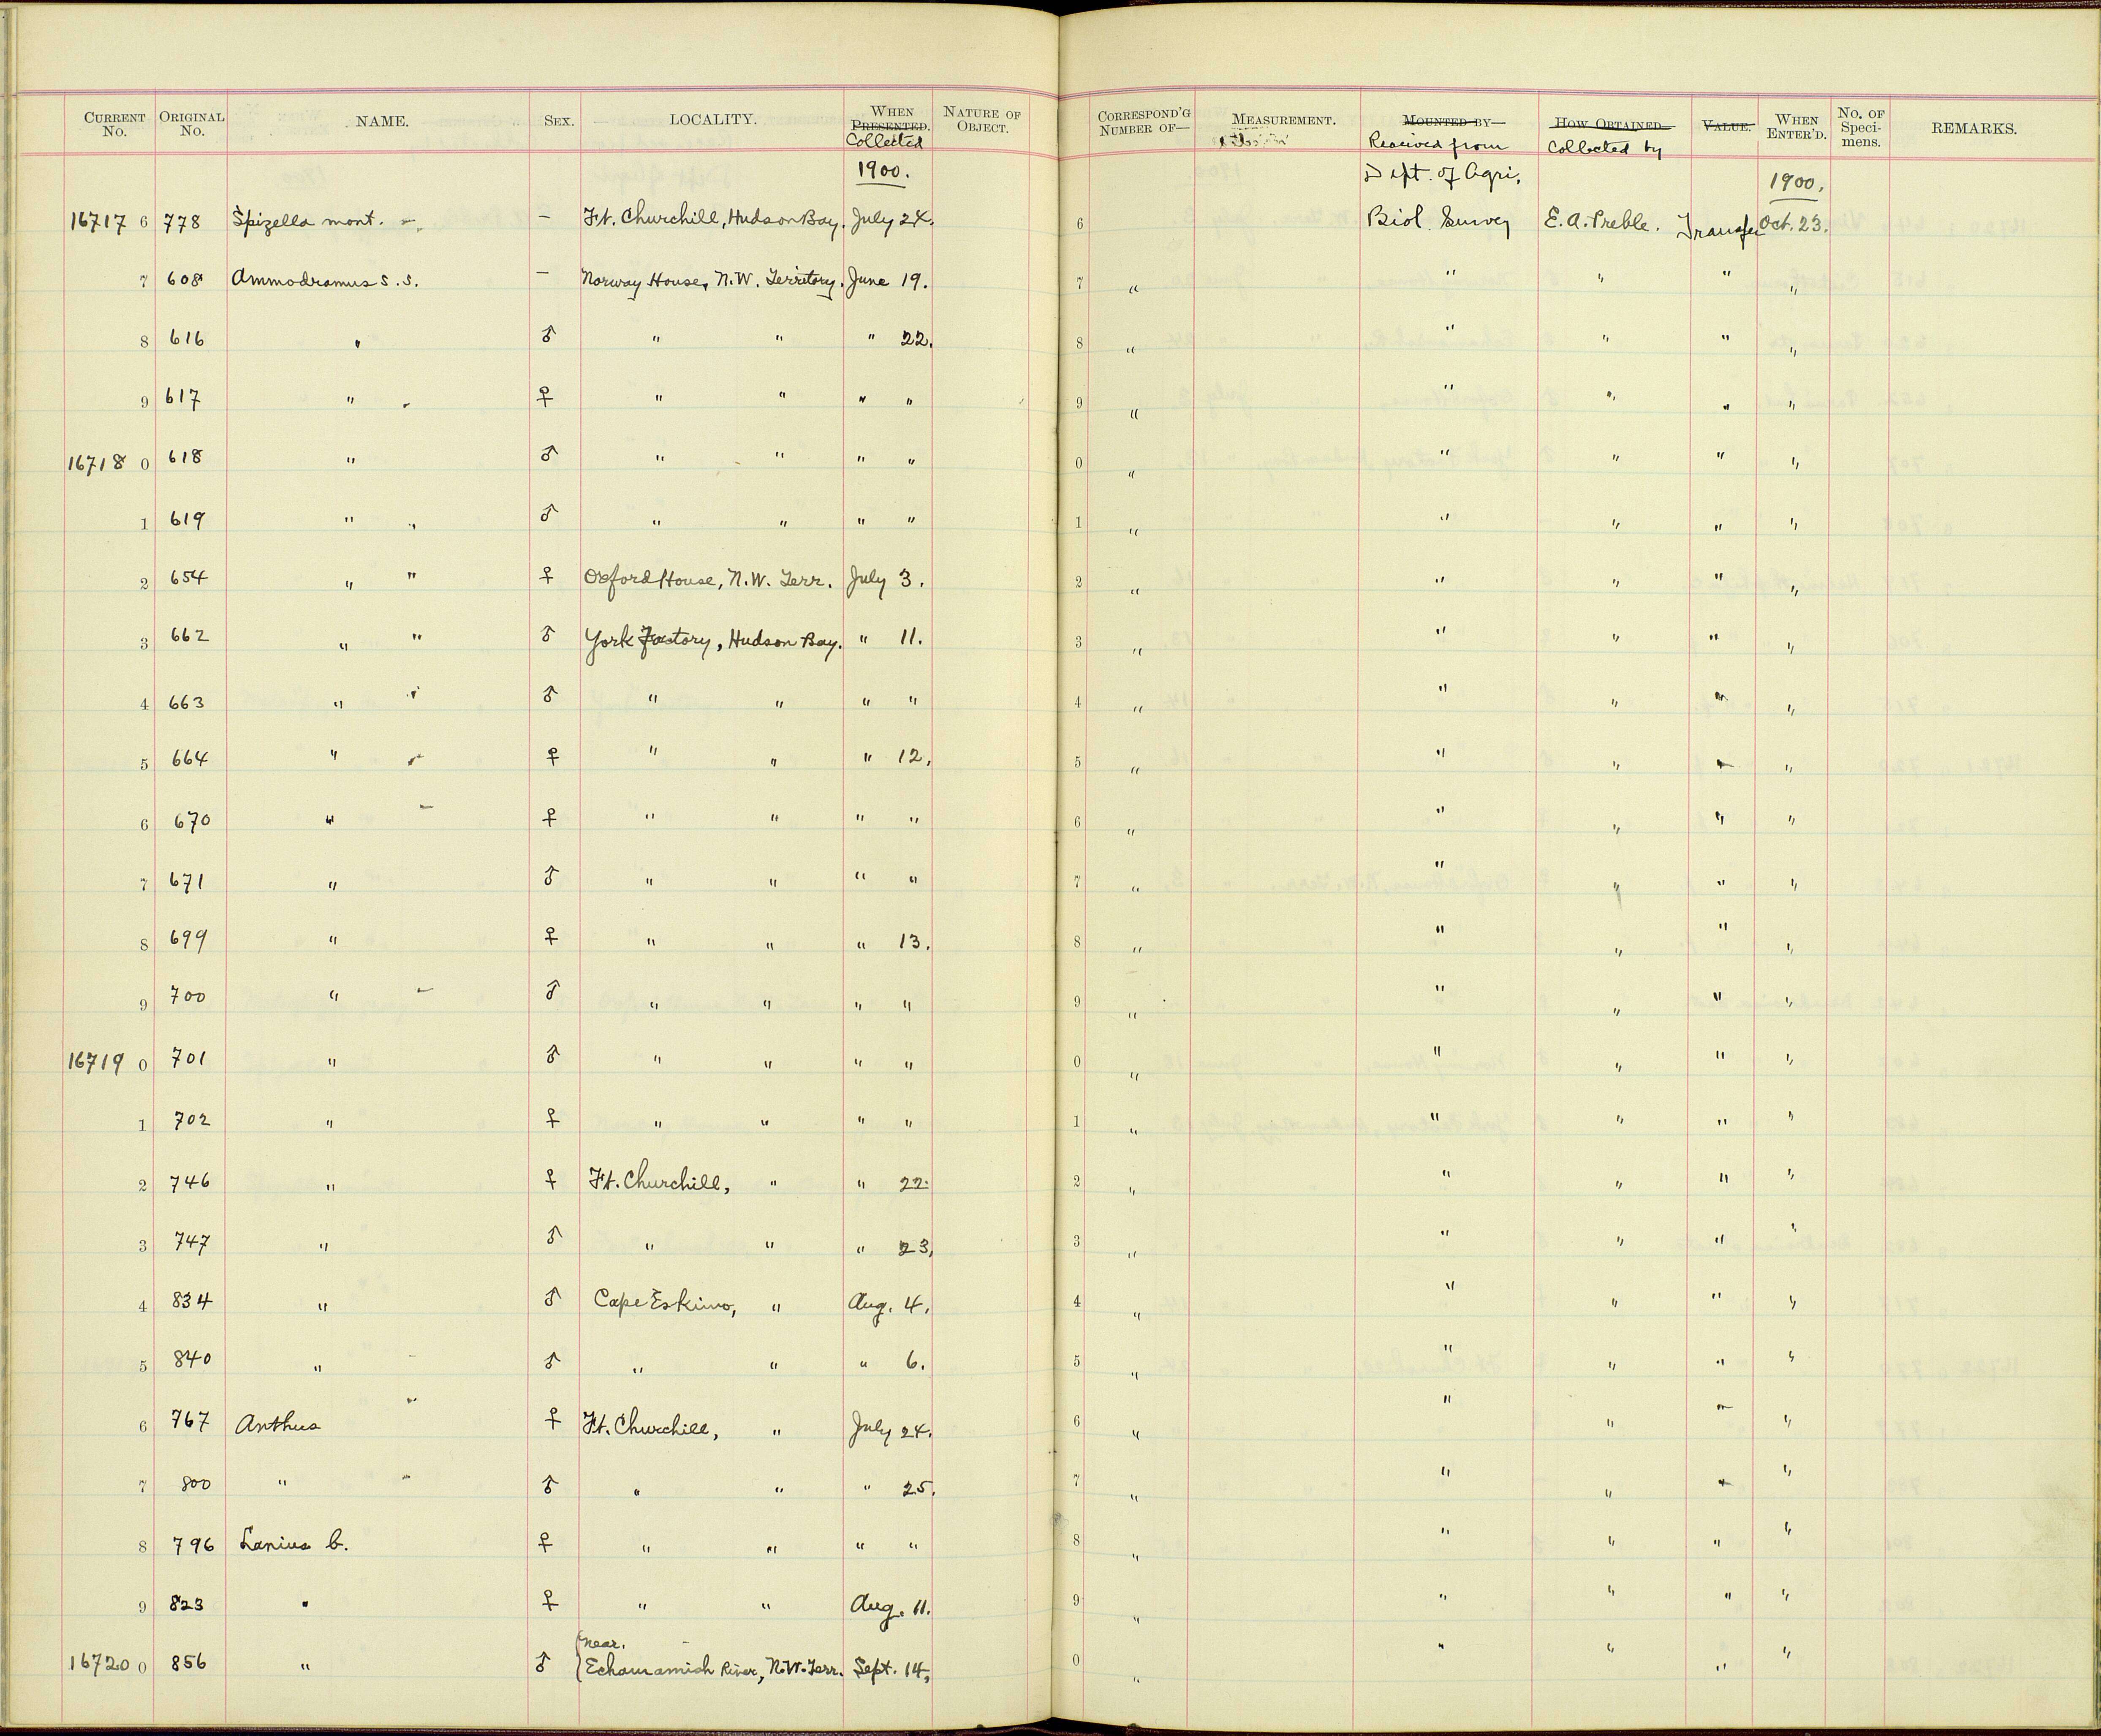 CURRENT No. ORIGINAL No. NAME. SEX. LOCALITY. WHEN PRESENTED. Collected NATURE OF OBJECT. CORRESPOND'G NUMBER OF— MEASUREMENT. MOUNTED BY— Received from HOW OBTAINED Collected by VALUE. WHEN ENTER'D. No. OF Speci-mens. REMARKS.
1900. Dept. of Agri. 1900.
16717 6 778 Spizella mont. " — Ft. Churchill, Hudson Bay. July 24. 6 Biol. Survey E. A. Preble. Transfer Oct. 23.
7 608 Ammodramus s. s. — Norway House, N.W. Territory. June 19. 7 " " " " "
8 616 " ♂ " " " 22. 8 " " " " "
9 617 " " ♀ " " " " 9 " " " " "
16718 0 618 " ♂ " " " " 0 " " " " "
1 619 " " ♂ " " " " 1 " " " " "
2 654 " " ♀ Oxford House, N.W. Terr. July 3. 2 " " " " "
3 662 " " ♂ York Factory, Hudson Bay. " 11. 3 " " " " "
4 663 " " ♂ " " " " 4 " " " " "
5 664 " " ♀ " " " 12. 5 " " " " "
6 670 " " ♀ " " " " 6 " " " " "
7 671 " ♂ " " " " 7 " " " " "
8 699 " ♀ " " " 13. 8 " " " " "
9 700 " " ♂ " " " " 9 " " " " "
16719 0 701 " ♂ " " " " 0 " " " " "
1 702 " ♀ " " " " 1 " " " " "
2 746 " ♀ Ft. Churchill, " " 22. 2 " " " " "
3 747 " ♂ " " " 23. 3 " " " " "
4 834 " ♂ Cape Eskimo, " Aug. 4. 4 " " " " "
5 840 " ♂ " " " 6. 5 " " " " "
6 767 Anthus " ♀ Ft. Churchill, " July 24. 6 " " " " "
7 800 " " ♂ " " " 25. 7 " " " " "
8 796 Lanius b. ♀ " " " " 8 " " " " "
9 823 " ♀ " " Aug. 11. 9 " " " " "
near.
16720 0 856 " ♂ Echamamish River, N.W. Terr. Sept. 14, 0 " " " " "